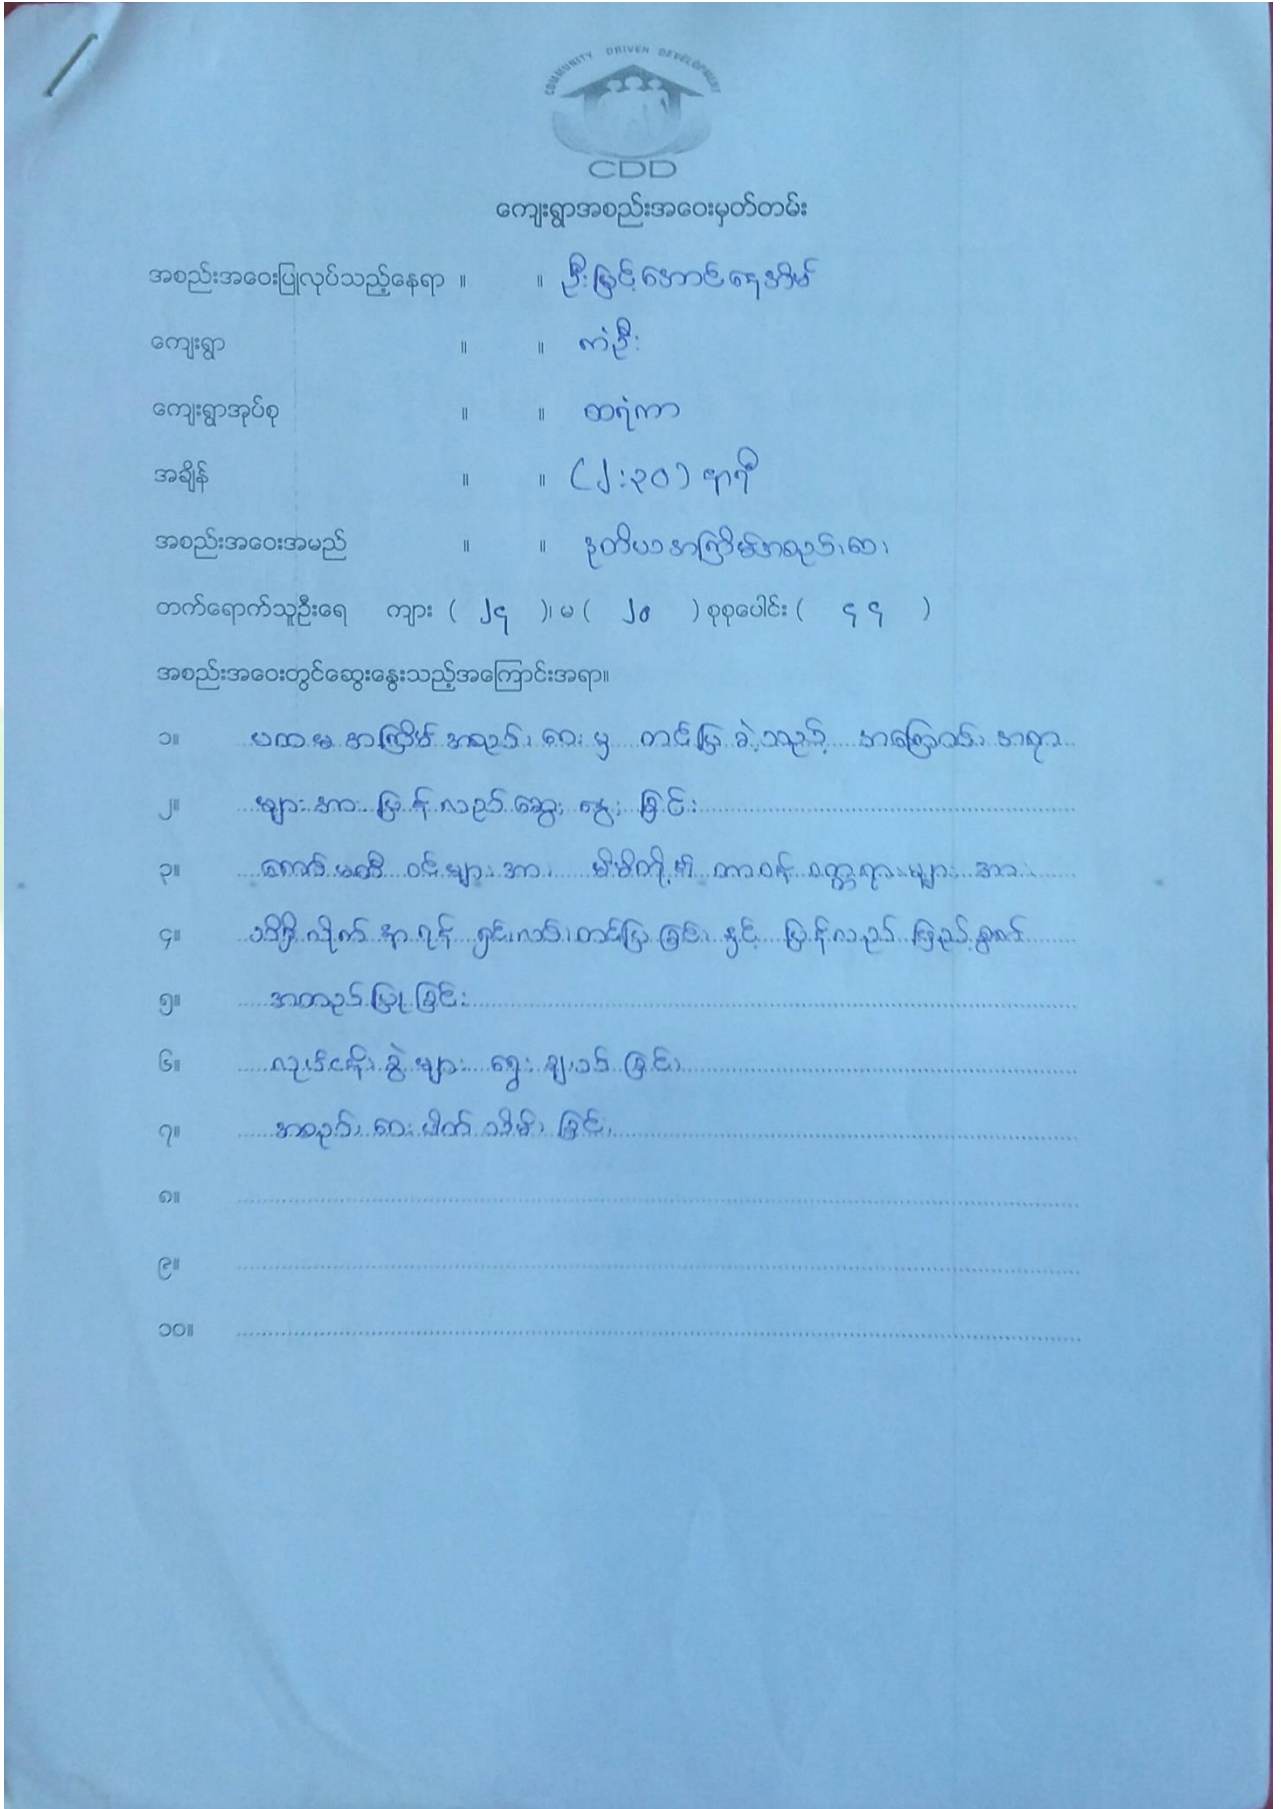 COMMUNITY DRIVEN DEVELOPMENT
CDD
ကျေးရွာအစည်းအဝေးမှတ်တမ်း
အစည်းအဝေးပြုလုပ်သည့်နေရာ ။ ။ ဦးမြင့်အောင်နေအိမ်
ကျေးရွာ ။ ။ ကံဦး
ကျေးရွာအုပ်စု ။ ။ ထရံကာ
အချိန် ။ ။ (၂:၃၀) နာရီ
အစည်းအဝေးအမည် ။ ။ ဒုတိယအကြိမ်အစည်းအဝေး
တက်ရောက်သူဦးရေ ကျား ( ၂၄ )၊ မ ( ၂၀ ) စုစုပေါင်း ( ၄၄ )
အစည်းအဝေးတွင်ဆွေးနွေးသည့်အကြောင်းအရာ။
၁။ ပထမအကြိမ် အစည်းဝေးမှ တင်ပြခဲ့သည့် အကြောင်းအရာ
၂။ များအား ပြန်လည်ဆွေးနွေးခြင်း
၃။ ကော်မတီဝင်များအား မိမိတို့၏ တာဝန်ဝတ္တရားများအား
၄။ သိရှိလိုက်နာရန် ရှင်းလင်းတင်ပြခြင်းနှင့် ပြန်လည်ဖြည့်စွက်
၅။ အတည်ပြုခြင်း
၆။ လုပ်ငန်းခွဲများ ရွေးချယ်ခြင်း
၇။ အစည်းဝေးပိတ်သိမ်းခြင်း
၈။
၉။
၁၀။